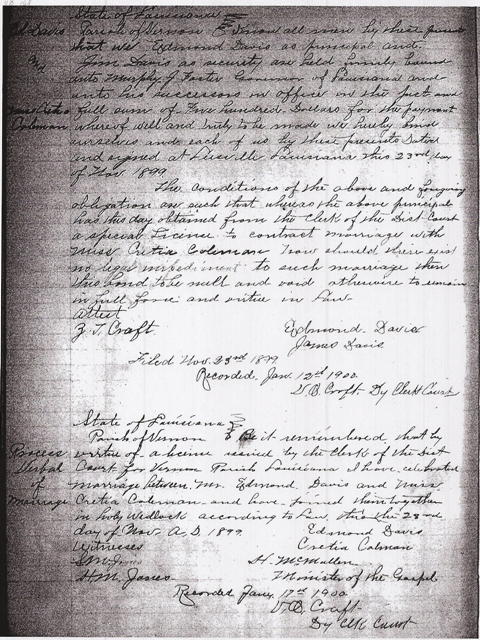 State of Louisiana
Ed Davis Parish of Vernon Know all men by these
that we Edmond Davis as principal and
Jim Davis as security are held firmly bound
unto Murphy J Foster Governor of Louisiana and
unto his successors in office in the just and
full sum of Five hundred Dollars for the payment
Coleman whereof well and truly to be made we hereby bind
ourselves and each of us by these presents Dated
and signed at Leesville Louisiana this 23rd day
of Nov 1899
The conditions of the above and foregoing
obligation are such that whereas the above principal
has this day obtained from the Clerk of the Dist Court
a special License to contract marriage with
Miss Cretia Coleman Now should there exist
no legal impediment to such marriage then
this bond to be null and void otherwise to remain
in full force and virtue in Law
Attest
Z. T. Craft Edmond Davis
James Davis
Filed Nov. 23rd 1899
Recorded, Jan. 12th 1900
V. O. Craft. Dy Clerk Court
State of Louisiana
Parish of Vernon Be it remembered, that by
Process virtue of a license issued by the Clerk of the Dist
Verbal Court for Vernon Parish Louisiana I have celebrated
of marriage between Mr. Edmond Davis and Miss
Marriage Cretia Coleman and have joined them together
in holy Wedlock according to Law, this the 23rd
day of Nov. A. D. 1899. Edmond Davis
Witnesses Cretia Colman
S. M. Jones H. McMullen
H. M. Jones Minister of the Gospel
Recorded Jany. 17th 1900
V. O. Craft
Dy Clk Court